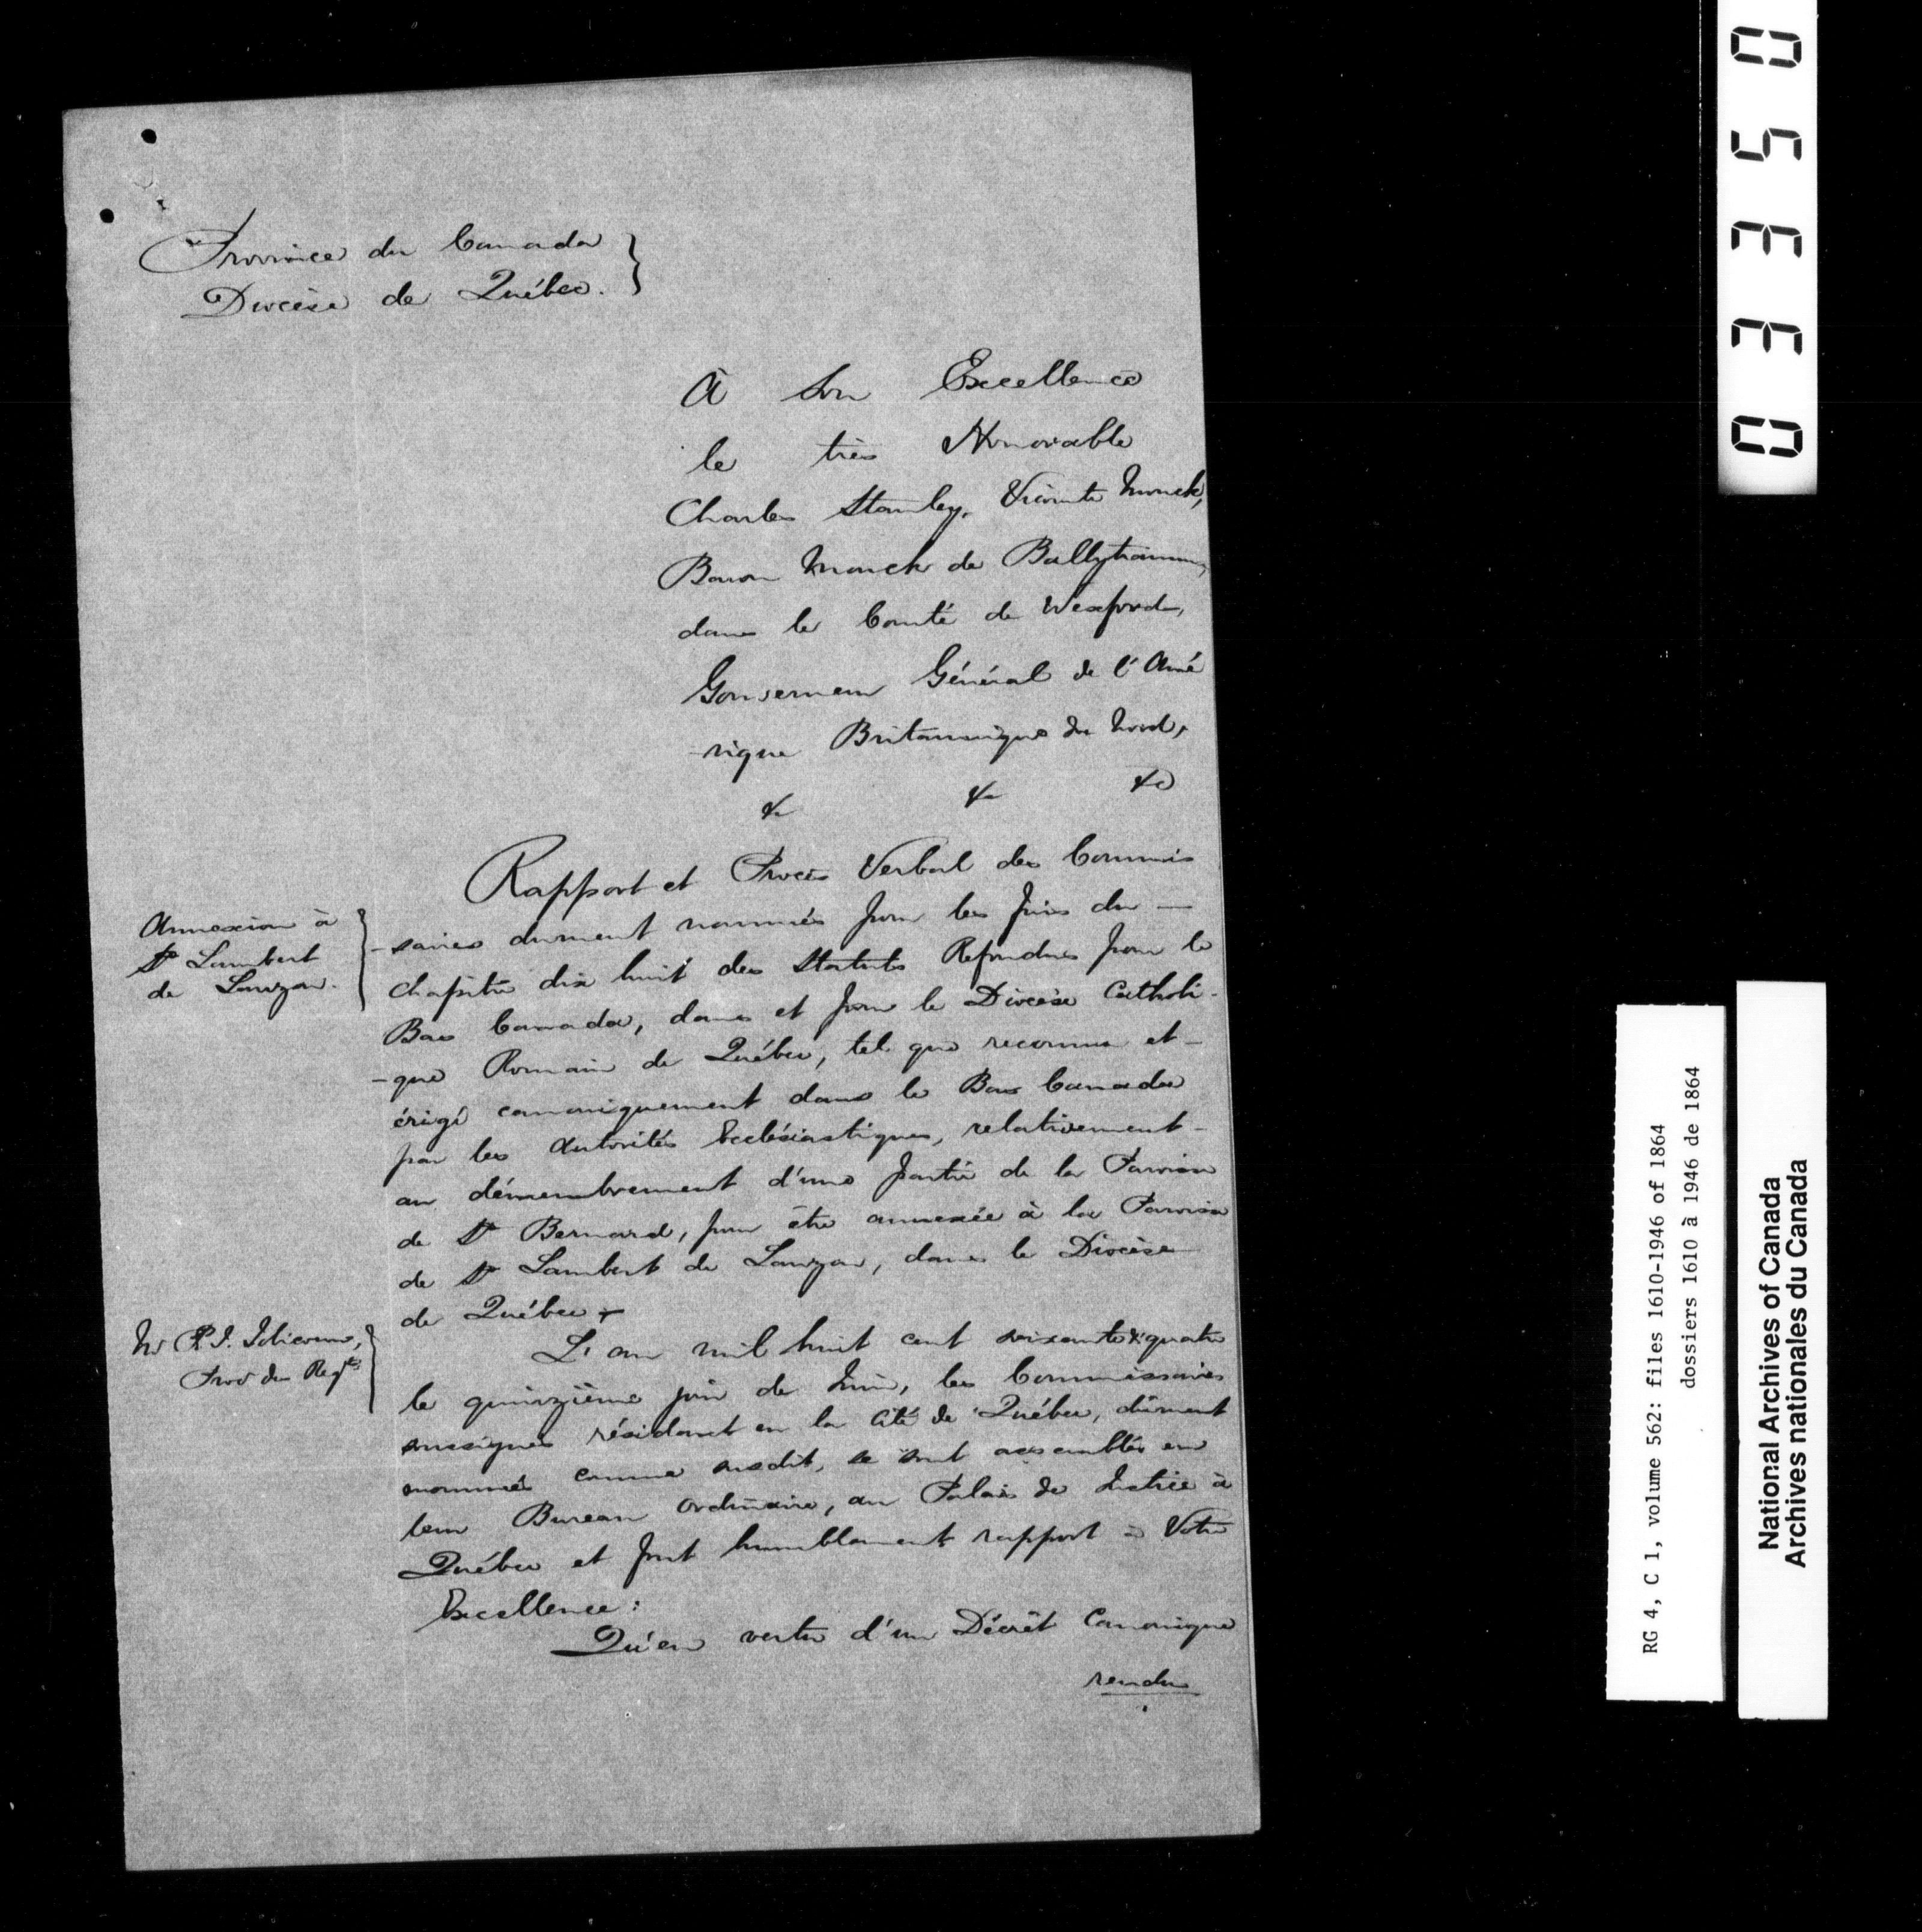 Province du Canada
Diocèse de Québec.
A Son Excellence
le très Honorable
Charles Stanley, Vicomte Monck,
Baron Monck de Ballytrammon,
dans le Comté de Wexford,
Gouverneur Général de l'Amé
-rique Britannique du Nord,
& & &c
Rapport et Procès Verbal des Commis
-saires dument nommés pour les fins du —
Chapitre dix huit des Statuts Refondus pour le
Bas Canada, dans et pour le Diocèse Catholi-
-que Romain de Québec, tel que reconnu et -
érigé canoniquement dans le Bas Canada
par les Autorités Ecclésiastiques, relativement -
au démembrement d'une partie de la Paroisse
de St Bernard, pour être annexée à la Paroisse
de St Lambert de Lauzon, dans le Diocèse
de Québec
Annexion à
St Lambert
de Lauzon.
L'an mil huit cent soixante & quatre
le quinzième jour de Juin, les Commissaires
soussignés résidant en la Cité de Québec, dûment
nommés comme susdit, se sont assemblés en
leur Bureau Ordinaire, au Palais de Justice à
Québec et font humblement rapport à Votre
Excellence:
Mr P. J. Jolicoeur,
Proc des Reqts
Qu'en vertu d'un Décrêt Canonique
rendu
03350
RG 4, C 1, volume 562: files 1610-1946 of 1864
dossiers 1610 à 1946 de 1864
National Archives of Canada
Archives nationales du Canada